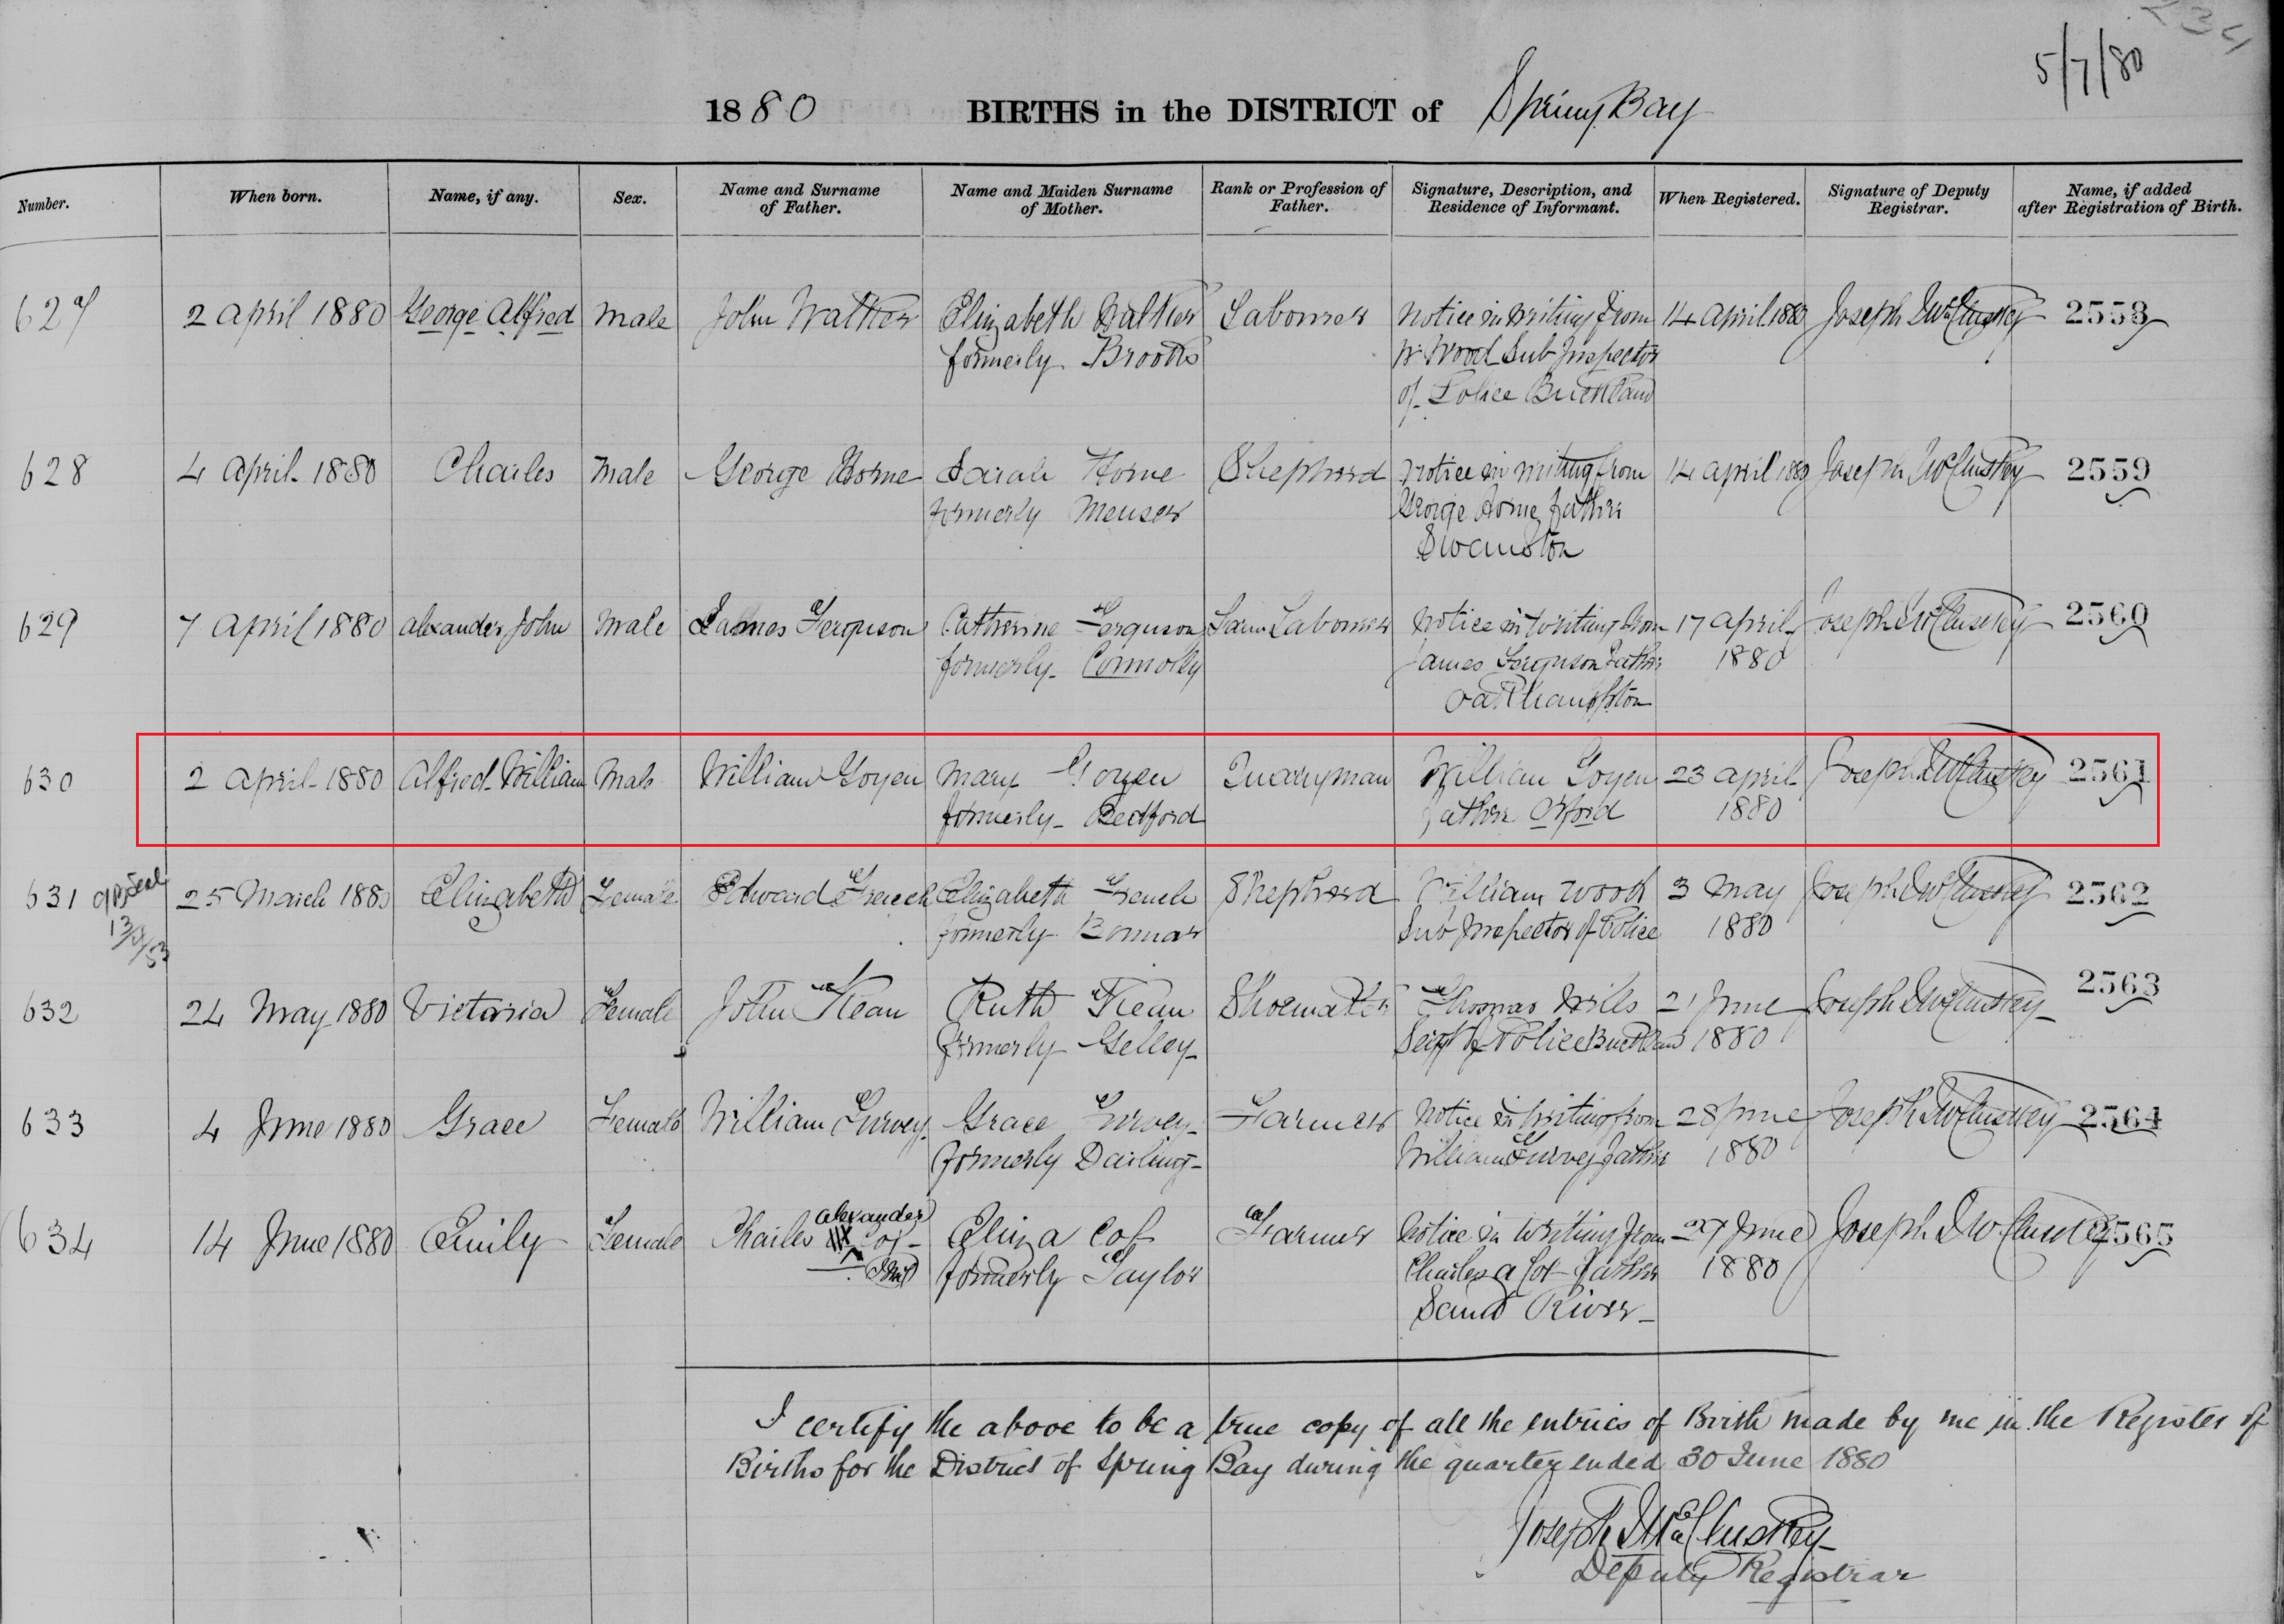 234
5/7/80
1880 BIRTHS in the DISTRICT of Spring Bay
Number. When born. Name, if any. Sex. Name and Surname of Father. Name and Maiden Surname of Mother. Rank or Profession of Father. Signature, Description, and Residence of Informant. When Registered. Signature of Deputy Registrar. Name, if added after Registration of Birth.
627 2 April 1880 George Alfred Male John Walker Elizabeth Walker Labourer Notice in writing from 14 April 1880 Joseph McCluskey 2558
formerly Brooks W. Wood Sub Inspector
of Police Buckland
628 4 April 1880 Charles Male George Horne Sarah Horne Shepherd Notice in writing from 14 April 1880 Joseph McCluskey 2559
formerly Menser George Horne father
Swanston
629 7 April 1880 Alexander John Male James Ferguson Catherine Ferguson Farm Labourer Notice in writing from 17 April Joseph McCluskey 2560
formerly Connolly James Ferguson Father 1880
630 2 April 1880 Alfred William Male William Goyen Mary Goyen Quarryman William Goyen 23 April Joseph McCluskey 2561
formerly Bedford father Orford 1880
631 25 March 1880 Elizabeth Female Edward French Elizabeth French Shepherd William Wood 3 May Joseph McCluskey 2562
13/3/53 formerly Bonnar Sub Inspector of Police 1880
632 24 May 1880 Victoria Female John Kean Ruth Kean Shoemaker Thomas Wills 21 June Joseph McCluskey 2563
formerly Gelley of Police Buckland 1880
633 4 June 1880 Grace Female William Turvey Grace Turvey Farmer Notice in writing from 28 June Joseph McCluskey 2564
formerly Darling William Turvey father 1880
634 14 June 1880 Emily Female Charles Alexander Cox Eliza Cox Farmer Notice in writing from 29 June Joseph McCluskey 2565
formerly Taylor Charles A Cox Father 1880
Sand River
I certify the above to be a true copy of all the entries of Birth made by me in the Register of
Births for the District of Spring Bay during the quarter ended 30 June 1880
Joseph McCluskey
Deputy Registrar